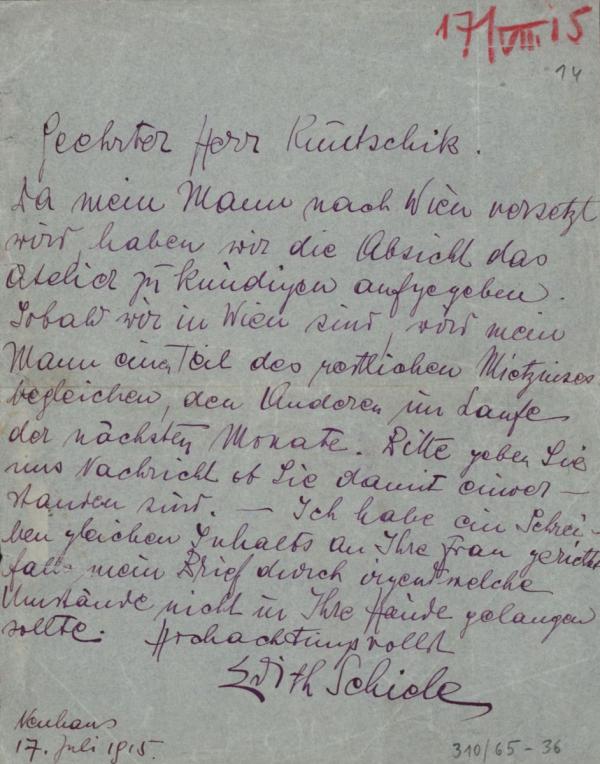 17/VIII 15
14
Geehrter Herr Küntschik.
Da mein Mann nach Wien versetzt
wird, haben wir die Absicht das
Atelier zu kündigen aufgegeben.
Sobald wir in Wien sind, wird mein
Mann einen Teil des restlichen Mietzinses
begleichen, den Anderen im Laufe
der nächsten Monate. Bitte geben Sie
uns Nachricht ob Sie damit einver-
standen sind. — Ich habe ein Schrei-
ben gleichen Inhalts an Ihre Frau
falls mein Brief durch irgend welche
Umstände nicht in Ihre Hände gelangen
sollte. Hochachtungsvollst
Edith Schiele
Neuhaus
17. Juli 1915.
310/65-36